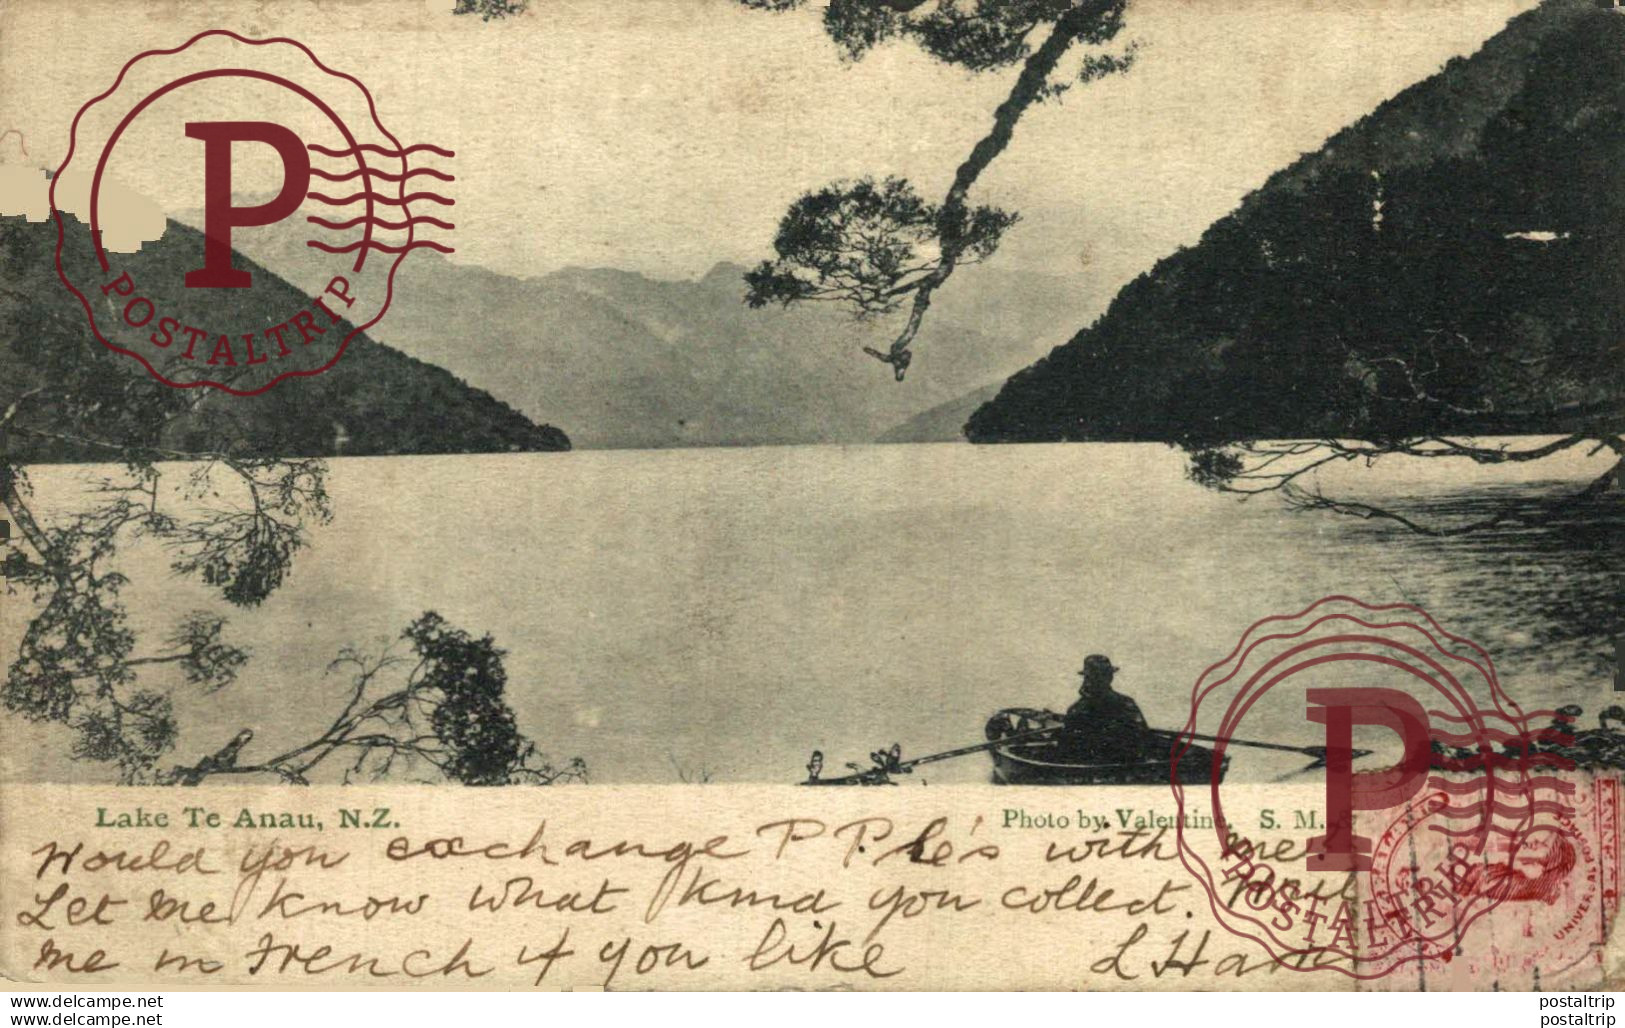 POSTALTRIP
Lake Te Anau, N.Z.
Photo by Valentine. S. M. &
Would you exchange P. P. C's with me?
Let me know what kind you collect. Write
me in French if you like L Ham
UNIVERSAL POSTAGE
POSTALTRIP
www.delcampe.net
www.delcampe.net
postaltrip
postaltrip